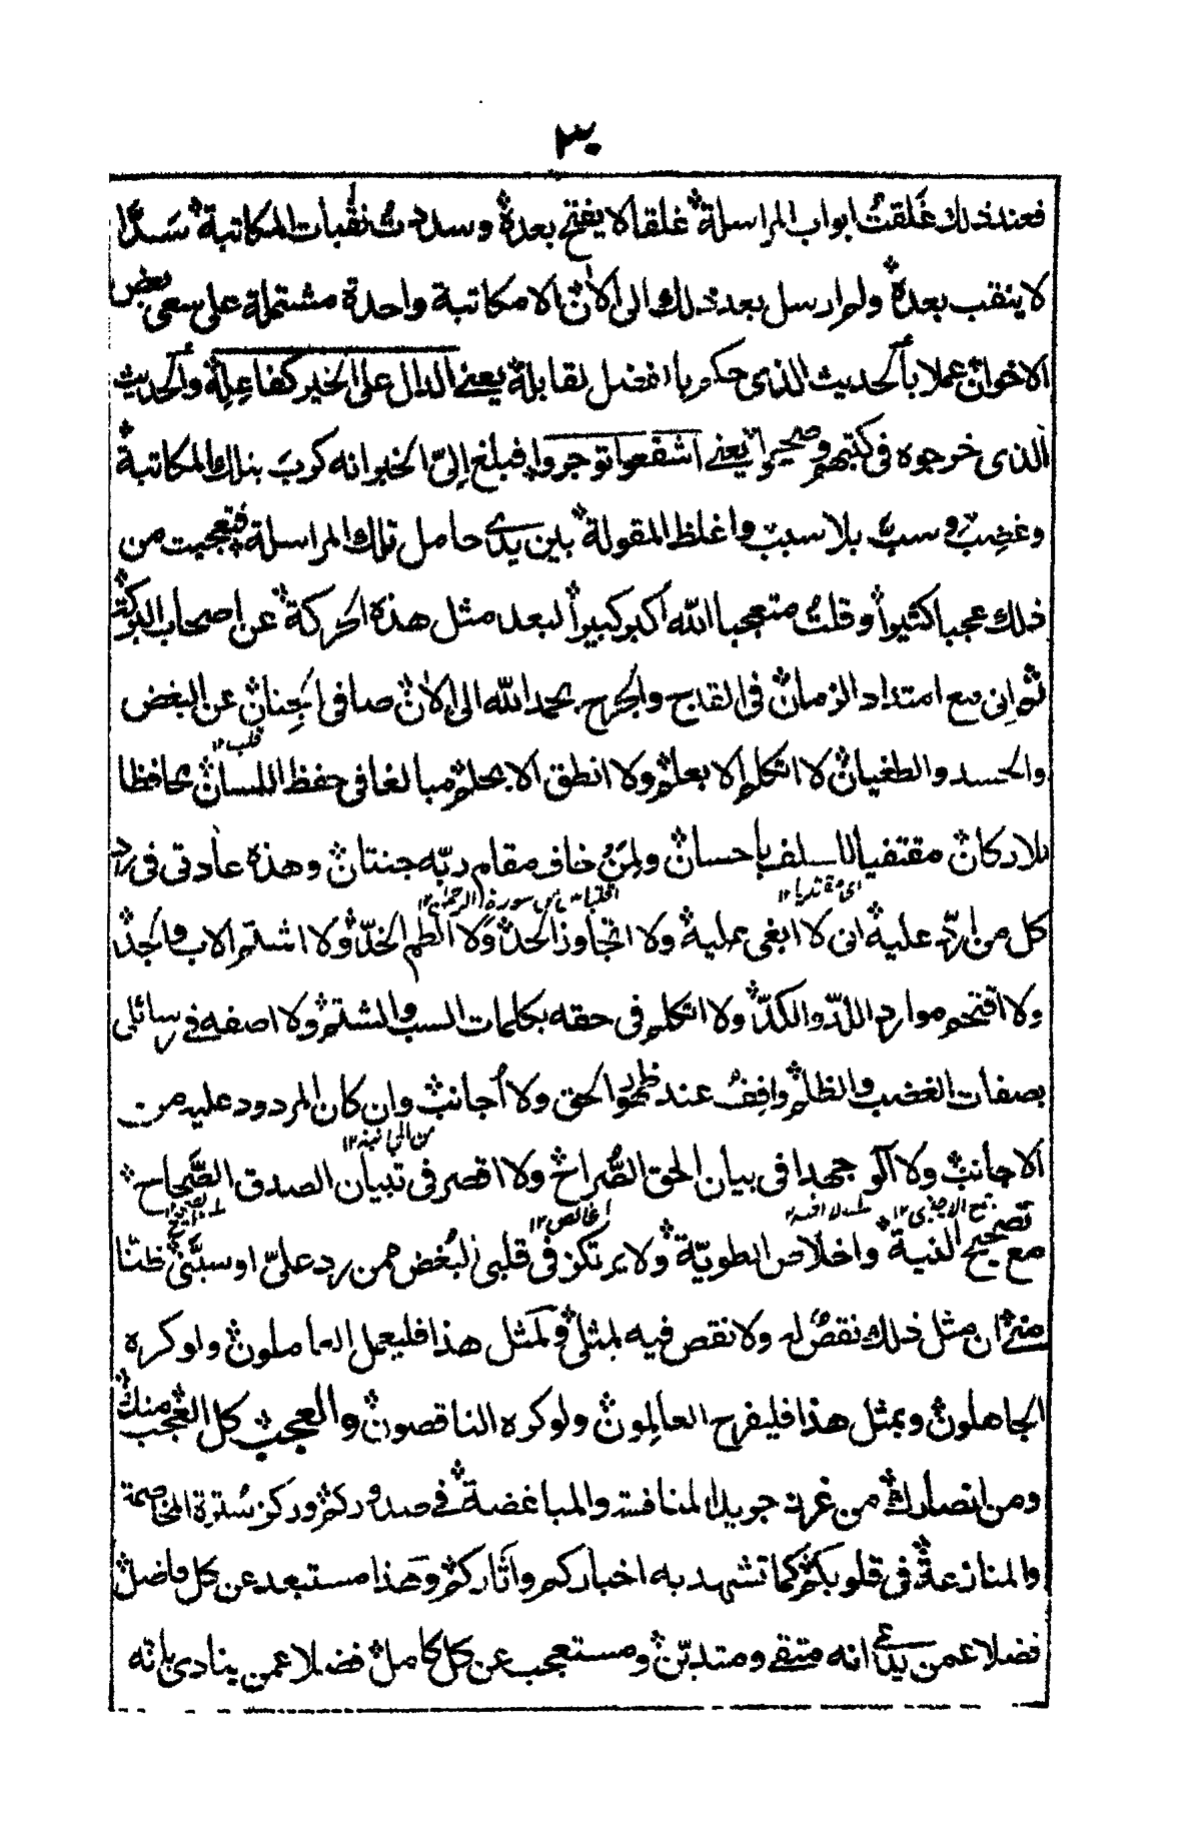 ٣٠
فعند ذلك غَلقتُ ابواب المراسلة غلقا لا يفتح بعده وسددتُ نقُبات المكاتبة سَدًّا
لا ينقب بعده ولم ارسل بعد ذلك الى الاٰن الا مكاتبة واحدة مشتملة على سعى بعض
الاخوان عملا بالحديث الذى حكم با لقابلة يعنى الدال على الخير كفاعِلِه والحديث
الذى خرجوه فى كتبهم وصححوا يعنى اشفعوا توجروا فبلغ اِلىّ الخبر انه كربَ بتلك المكاتبة
وغضِب وسبّ بلا سبب واغلظ المقولة بين يدى حامل تلك المراسلة فتعجبت من
ذلك عجبا كثيرا وقلتُ متعجبا الله اكبر كبيرا لبعد مثل هذه الحركة عن اصحاب البركة
ثم اِنى مع امتداد الزمان فى القدح والجرح بحمد الله الى الاٰن صافى الجِنان عن البغض
قلب ١٢
والحسد والطغيان لا اتكلم الا بعلم ولا انطق الا بحلم مبالغا فى حفظ اللسان محافظا
للاركان مقتفيا للسلف باحسان ولِمَنْ خاف مقام ربّه جنتان وهذه عادتى فى رد
اى مقتديا ١٢
اقتباس من سورة الرحمٰن ١٢
كل من اردّ عليه انى لا ابغى عليه ولا اتجاوز الحدّ ولا الطم الخدّ ولا اشتم الاب والجدّ
ولا اقتحم موارد اللدّ والكدّ ولا اتكلم فى حقه بكلمات السب والشتم ولا اصفه فى رسائلى
بصفات الغضب والظلم واقِفُ عند ظهور الحق ولا اُجانب وان كان المردود عليه من
من المجانبة ١٢
الاجانب ولا اٰلو جهدا فى بيان الحق الصُّراح ولا اقصر فى تبيان الصدق الصَّحاح
جمع الاجنبى ١٢
الخالص ١٢
مع تصحيح النية واخلاص الطويّة ولا يرتكز فى قلبى البُغض ممن رد علىّ او سبَّنى ظنًا
منى ان مثل ذلك نقصٌ له ولا نقص فيه لمثلى ولمثل هذا فليعمل العاملون ولو كره
الجاهلون وبمثل هذا فليفرح العالِمون ولو كره الناقصون والعجب كل العُجب منك
ومن انصارك من المنافسة والمباغضة فى صدوركم وركز سُترة المخاصمة
والمنازعة فى قلوبكم كما تشهد به اخباركم واٰثاركم وهذا مستبعد عن كل فاضل
فضلا عمن يدّعى انه متقى ومتديّن ومستعجب عن كل كامل فضلا عمن ينادى بانّه